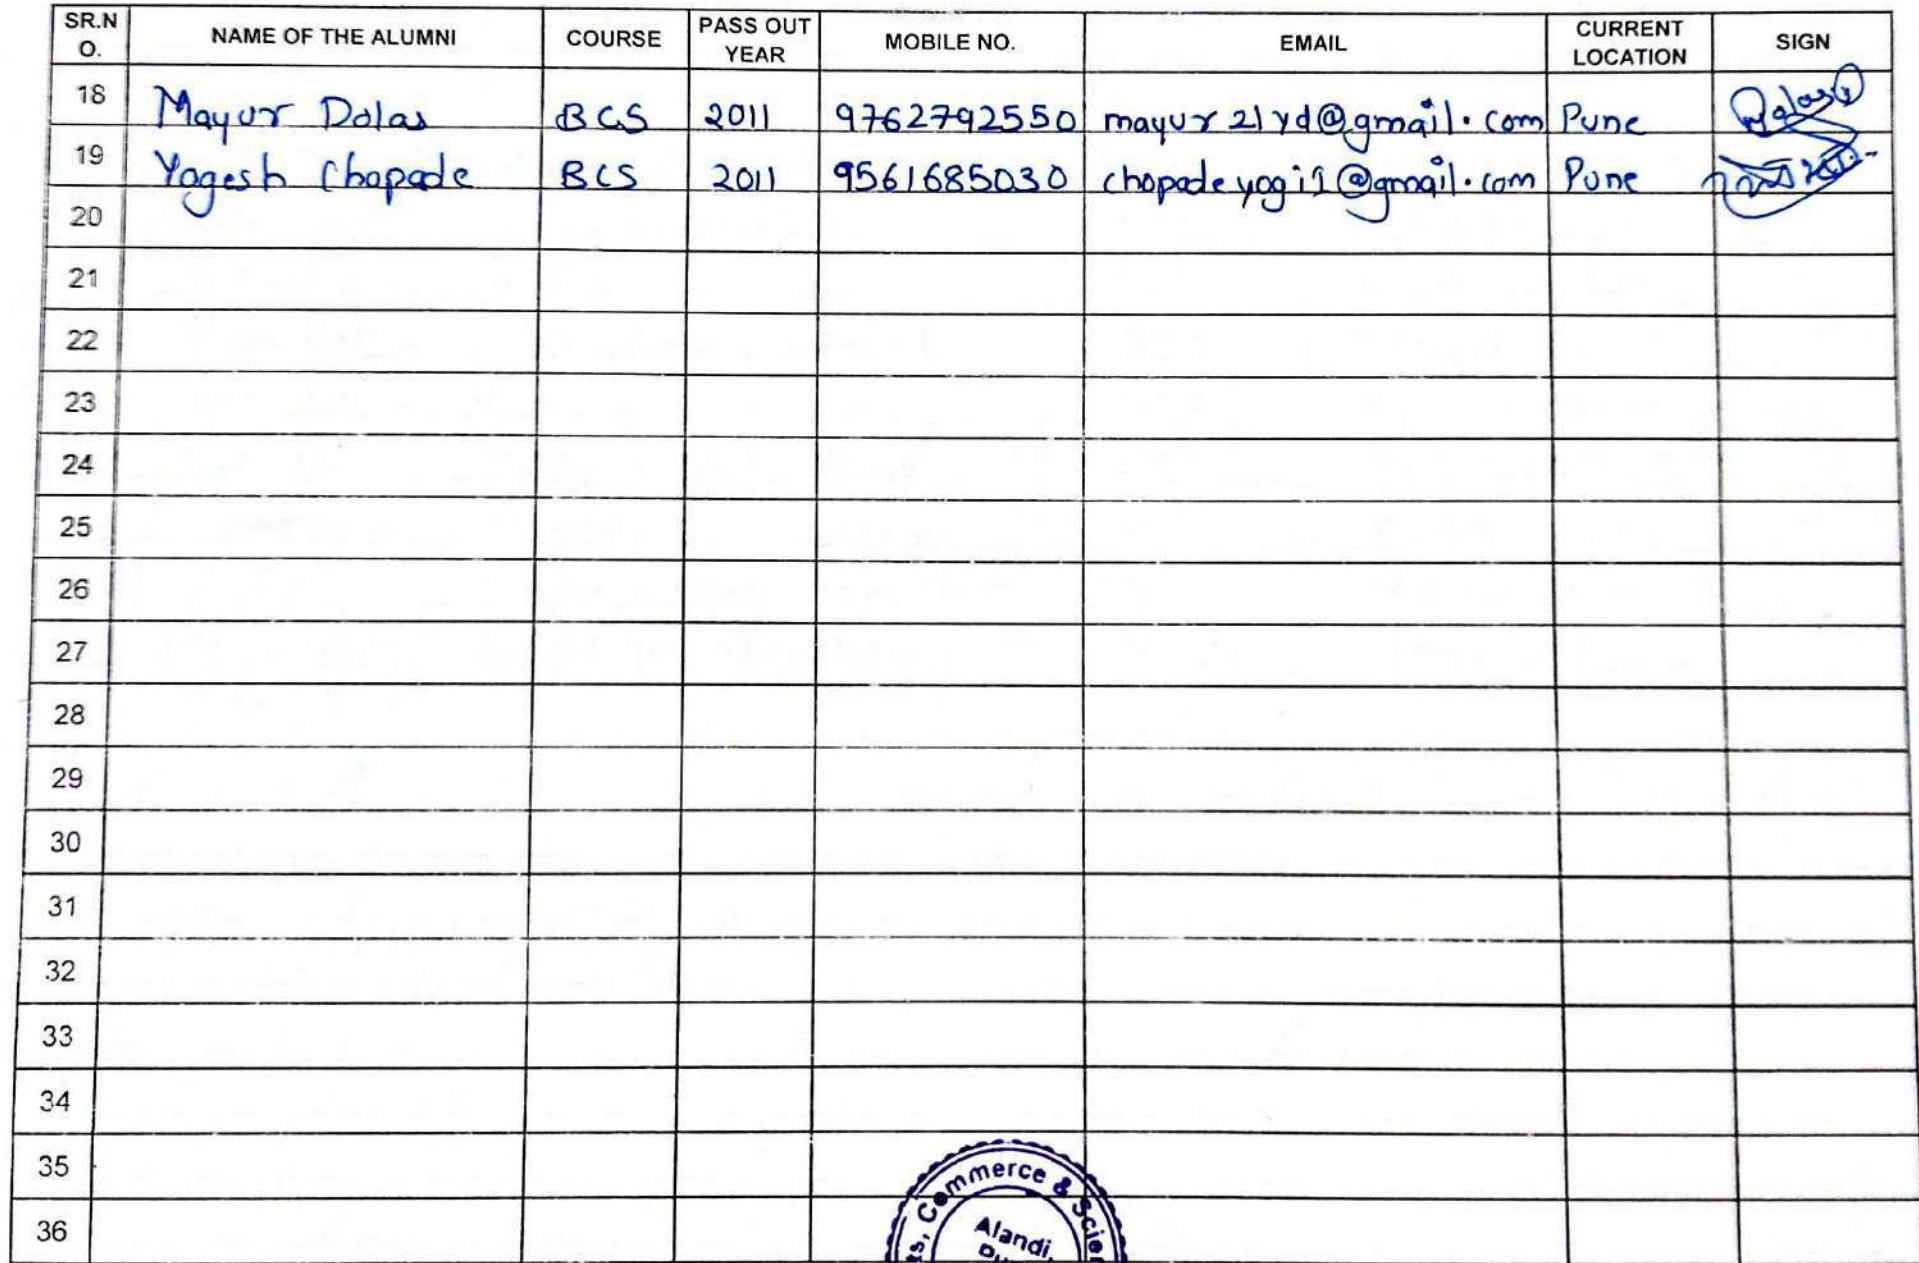 SR.N O. NAME OF THE ALUMNI COURSE PASS OUT YEAR MOBILE NO. EMAIL CURRENT LOCATION SIGN
18 Mayur Dolas BCS 2011 9762792550 mayur21yd@gmail.com Pune
19 Yogesh Chopade BCS 2011 9561685030 chopadeyogi1@gmail.com Pune
20
21
22
23
24
25
26
27
28
29
30
31
32
33
34
35
36
Commerce &
Alandi,